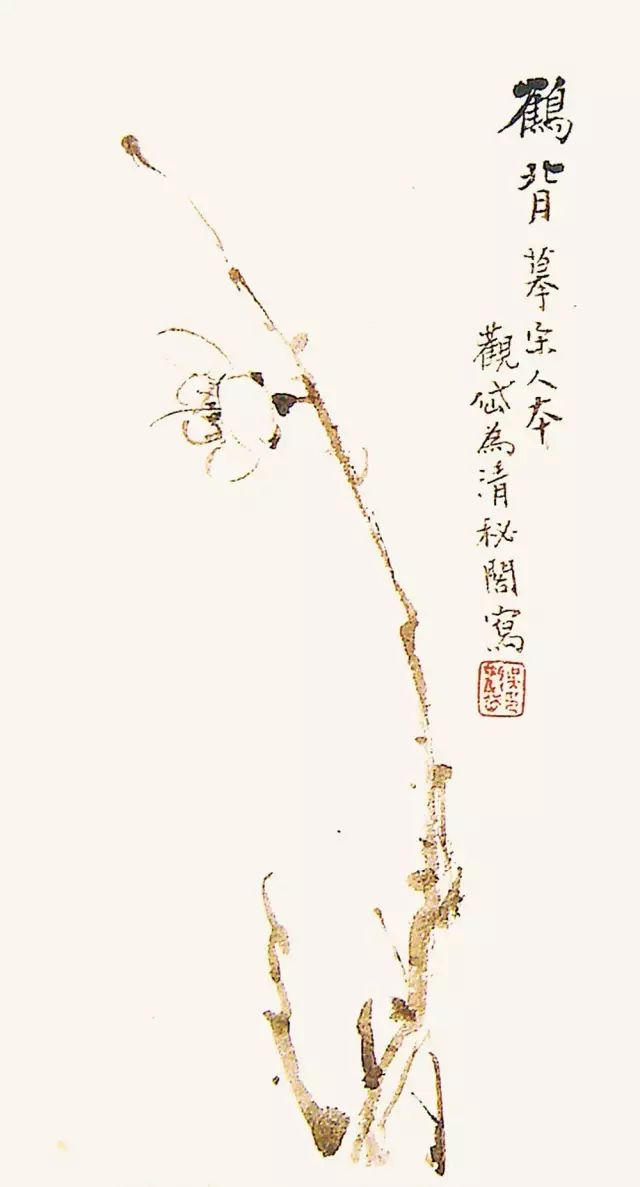 鶴背 摹宋人本
觀岱為清秘閣寫